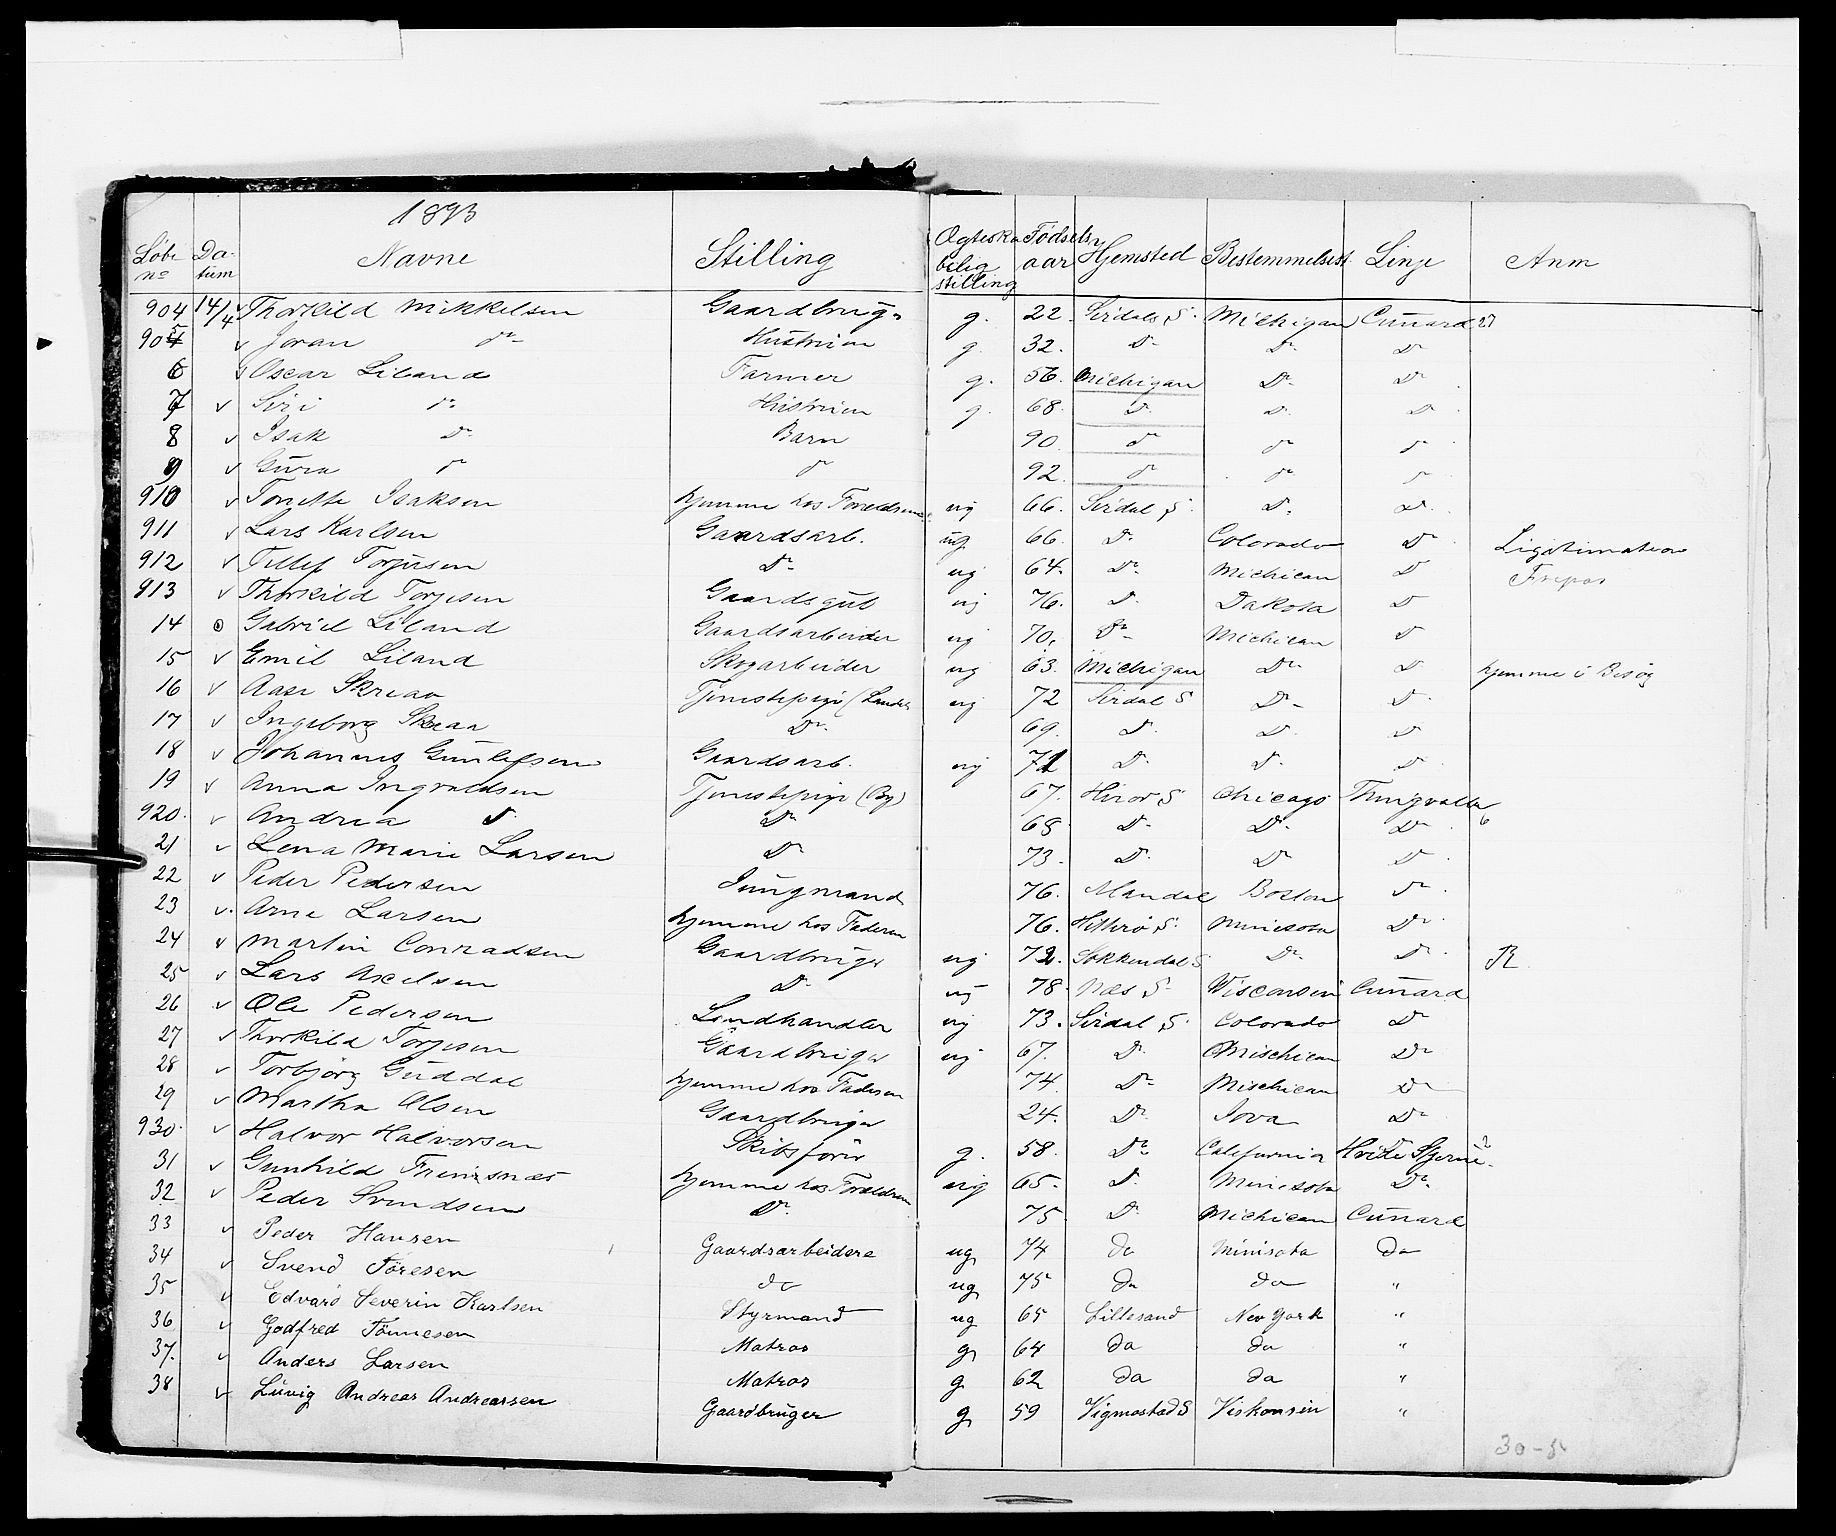 1893
Løbe no Datum Navne Stilling Ægteskabelig stilling Fødselsaar Hjemsted Bestemmelsest. Linje Anm
904 14/4 v Thorkild Mikkelsen Gaardbruger g. 22. Sirdals S. Michigan Cunard 27
905 v Joran do Hustruen g. 32. Do Do Do
6 v Oscar Liland Farmer g. 56. Michigan Do Do
7 v Siri do Hustruen g. 68. Do Do Do
8 v Isak do Barn 90 do do do
9 v Gura do do 92. do do do
910 v Tonette Isaksen hjemme hos Foreldrene ug 66. Sirdal S. Do Do
911 v Lars Karlsen Gaardsarb. ug 66. Do Colorado Do Legitimation
912 v Tellef Torjusen Do ug 64. Do Michican Do
913 v Thorkild Torjesen Gaardsgut ug 76. Do Dakota Do
14 Gabriel Liland Gaardsarbeider ug 70. Do Michican Do
15 v Emil Liland Skogarbeider ug 63. Michigan Do Do hjemme i Besøg
16 v Aase Skreaa Tjenestepige (Landet ug 72 Sirdal S Do Do
17 v Ingeborg Skreaa Do 69. Do Do Do
18 v Johannes Gunlefsen Gaardsarb. ug 71 Do Do Do
19 v Anna Ingvaldsen Tjenestepige (By) 67. S Chicago Thingvalla
920. v Andrea Do Do 68 Do Do Do 6
21 v Lena Marie Larsen Do 73. Do Do Do
22 v Peder Pedersen Jungmand 76. Mandal Boston Do
23 v. Arne Larsen hjemme hos Faderen 76. Hitterø S. Minisota Do
24 v Martin Conradsen Gaardbruger ug 72. Sokkendal S Do Do R
25 v Lars Axelsen Do ug 78. Næs S. Wisconsin Cunard
26 v Ole Pedersen Landhandler ug 73. Sirdal S. Colorado Do
27 v Thorkild Torjesen Gaardbruger ug 67. Do Mischican Do
28 v Torbjørg Guddal hjemme hos Faderen 74 Do Mischican Do
29 v Martha Olsen Gaardbruger 24. Do Iova Do
930. v Halvor Halvorsen Skibsfører g. 58. Do California Hvite Stjerne 2
31 v Gunhild hjemme hos Foreldrene ug 65. Do Minisota Do
32 v Peder Svendsen Do 75 Do Michican Cunard
33 v Peder Hansen Gaardsarbeidere ug 74 do Minisota do
34 v Svend Tøresen do ug 75 do do "
35 v Edvard Severin Karlsen Styrmand ug 65 Lillesand New York "
36 v Godfred Tönnesen Matros g 64 do do "
37. v Anders Larsen Matros g 62 do do "
38 v Luvig Andreas Andreassen Gaardbruger g 59 Vigmostad S Viskonsin "